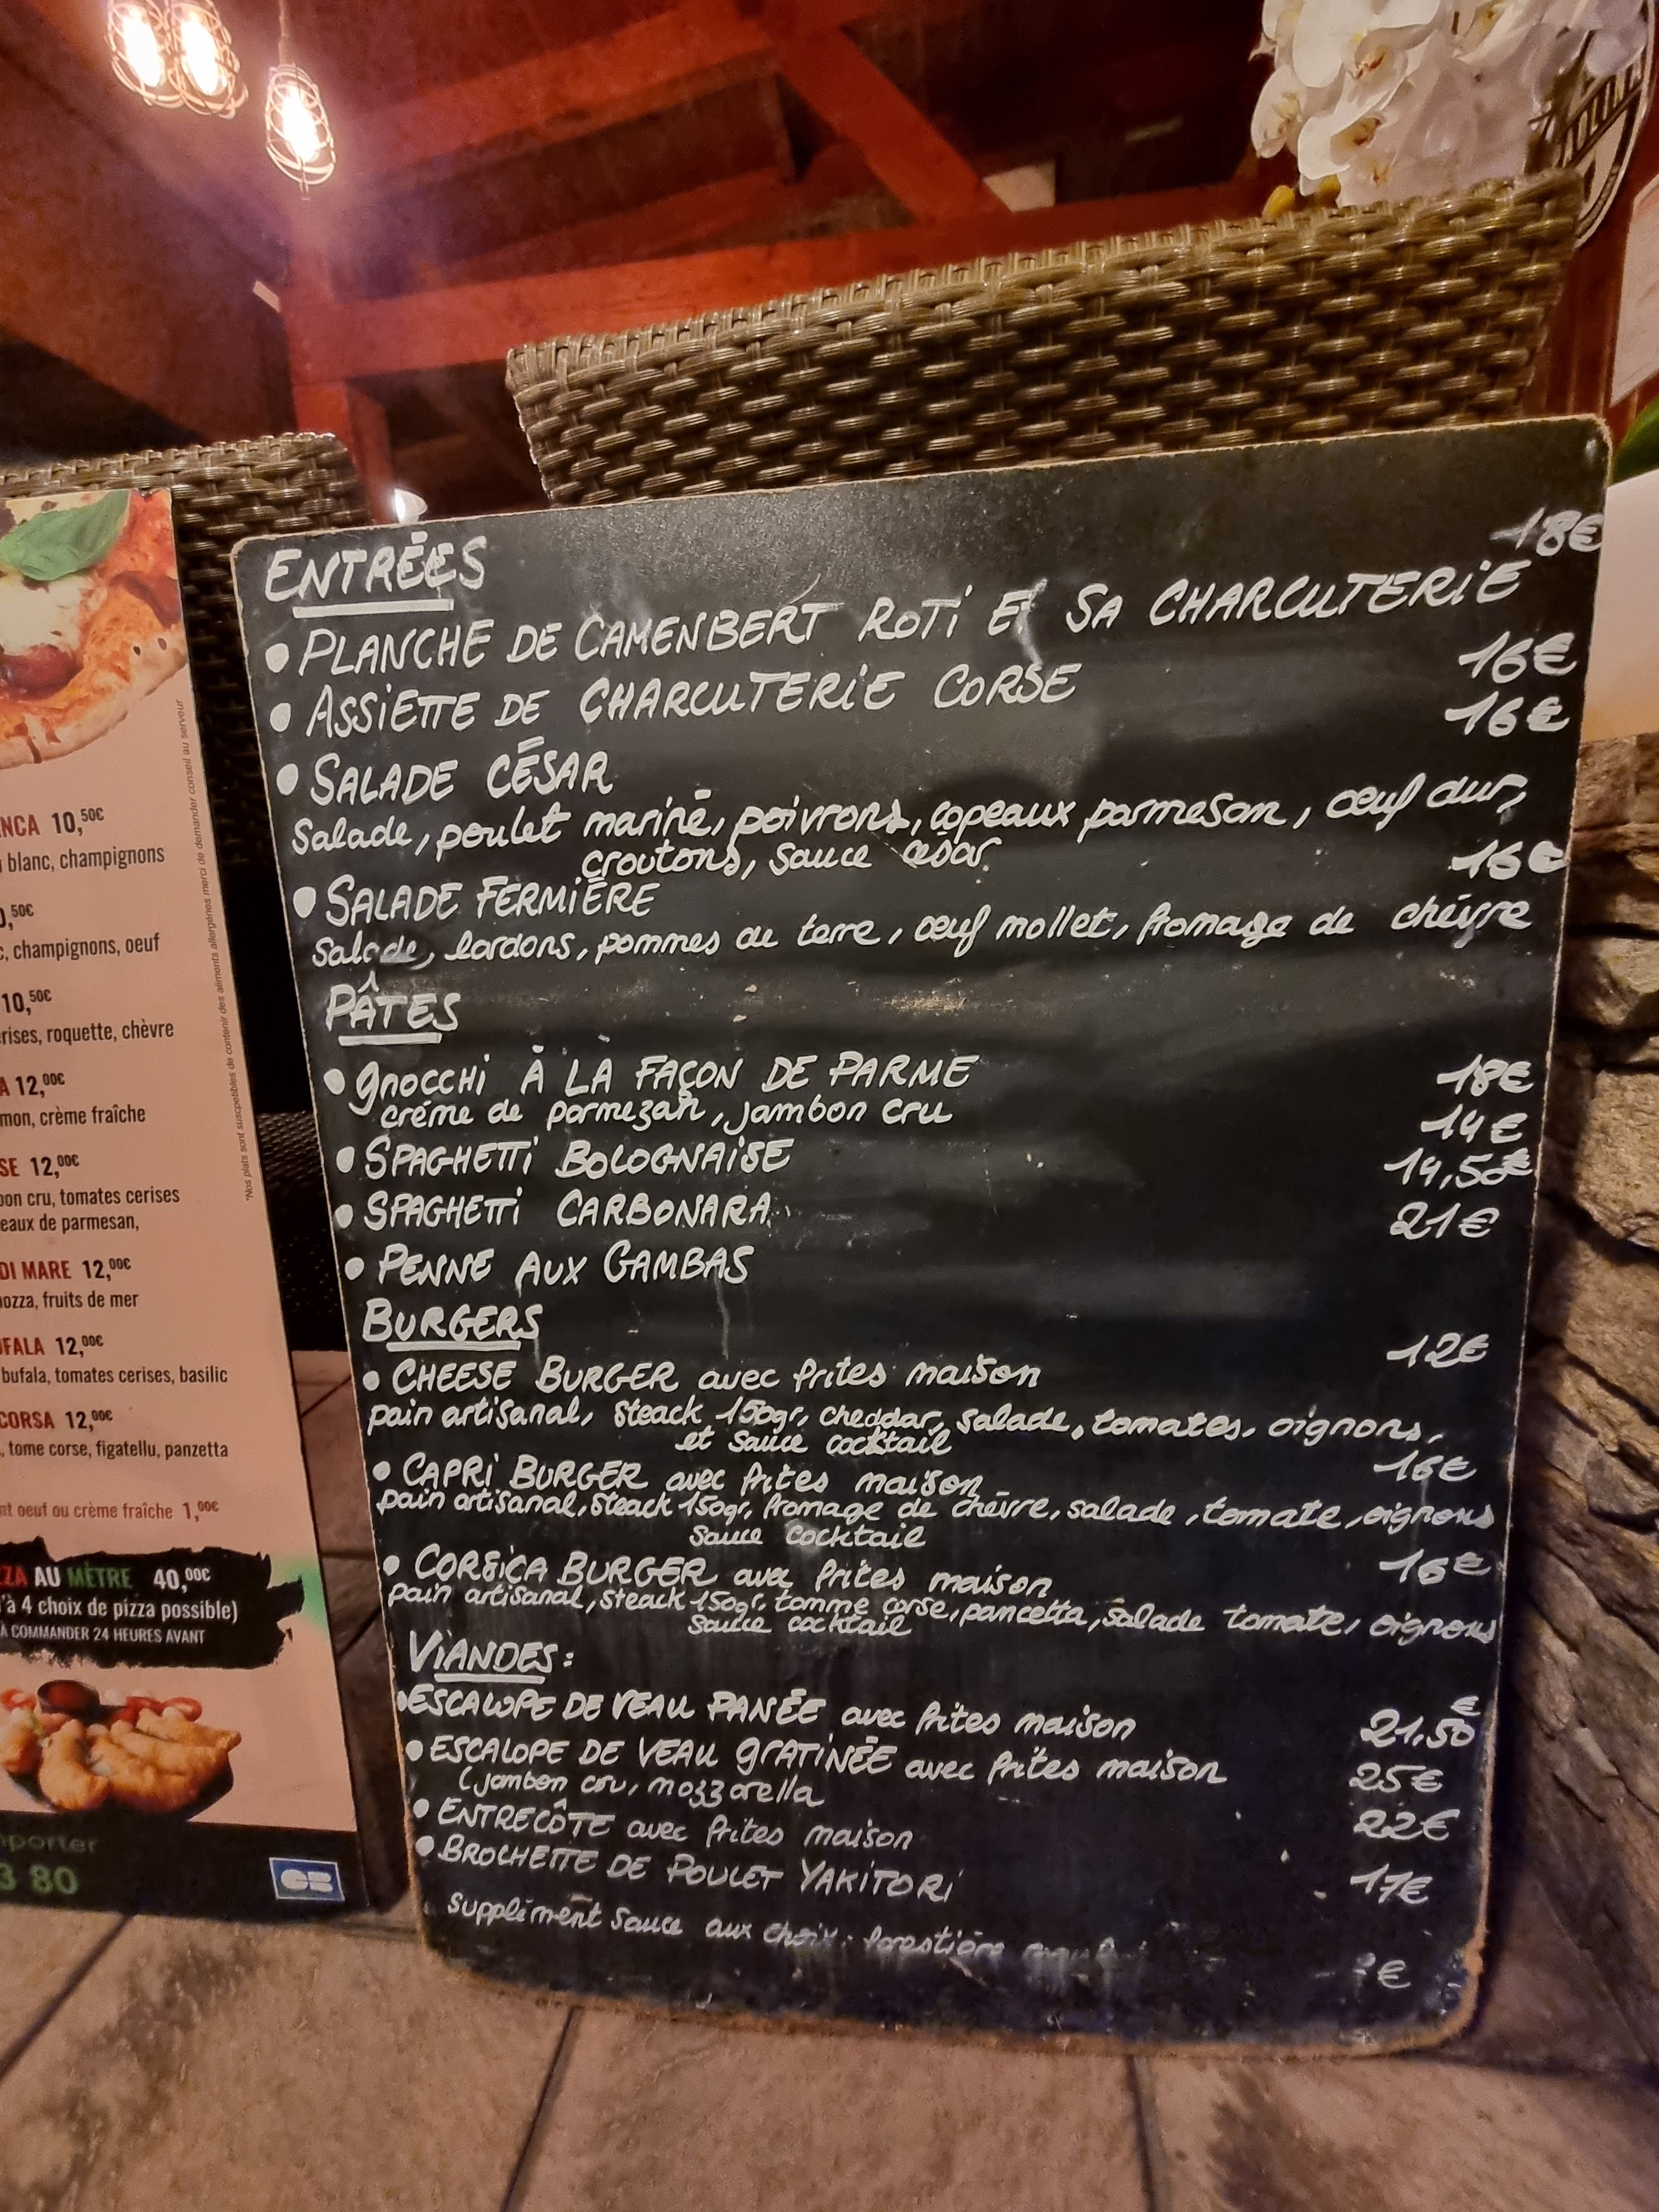 ENTRÉES
18€
• PLANCHE DE CAMENBERT ROTI ET SA CHARCUTERIE
• ASSIETTE DE CHARCUTERIE CORSE 16€
• SALADE CÉSAR 16€
Salade, poulet mariné, poivrons, copeaux parmesan, oeuf dur,
croutons, sauce césar.
• SALADE FERMIÈRE 16€
Salade, lardons, pommes de terre, oeuf mollet, fromage de chèvre
PÂTES
• gnocchi À LA FAÇON DE PARME 18€
crème de parmezan, jambon cru
• SPAGHETTI BOLOGNAISE 14€
• SPAGHETTI CARBONARA 14,50€
• PENNE AUX GAMBAS 21€
BURGERS
• CHEESE BURGER avec frites maison 12€
pain artisanal, steack 150gr, cheddar, salade, tomates, oignons,
et sauce cocktail
• CAPRI BURGER avec frites maison 16€
pain artisanal, steack 150gr, fromage de chèvre, salade, tomate, oignons
sauce cocktail
• CORSICA BURGER avec frites maison 16€
pain artisanal, steack 150gr, tomme corse, pancetta, salade tomate, oignons
sauce cocktail
VIANDES:
• ESCALOPE DE VEAU PANÉE avec frites maison 21,50€
• ESCALOPE DE VEAU gRATINÉE avec frites maison 25€
(jambon cru, mozzarella
• ENTRECÔTE avec frites maison 22€
• BROCHETTE DE POULET YAKITORI 17€
supplément sauce aux choix: forestière
€
NCA 10,50€
blanc, champignons
,50€
, champignons, oeuf
10,50€
rises, roquette, chèvre
A 12,00€
mon, crème fraîche
SE 12,00€
on cru, tomates cerises
eaux de parmesan,
DI MARE 12,00€
ozza, fruits de mer
FALA 12,00€
bufala, tomates cerises, basilic
CORSA 12,00€
, tome corse, figatellu, panzetta
nt oeuf ou crème fraîche 1,00€
ZZA AU MÈTRE 40,00€
'à 4 choix de pizza possible)
À COMMANDER 24 HEURES AVANT
mporter
3 80
CB
*Nos plats sont susceptibles de contenir des aliments allergènes merci de demander conseil au serveur